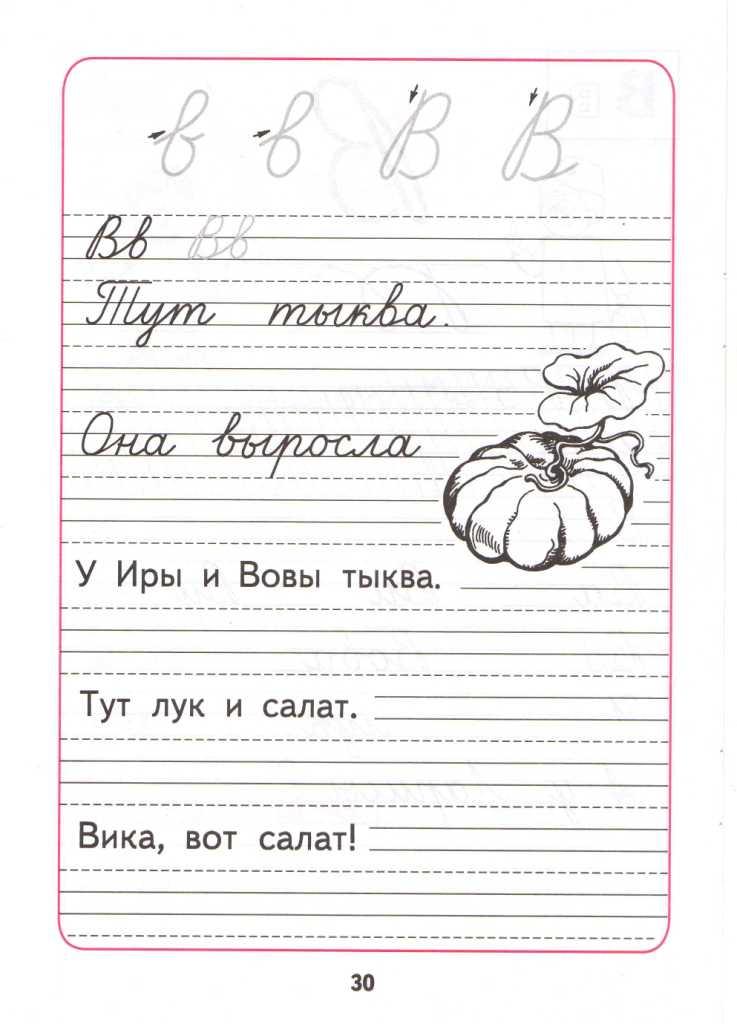 в в В В
Вв Вв
Тут тыква.
Она выросла
У Иры и Вовы тыква.
Тут лук и салат.
Вика, вот салат!
30